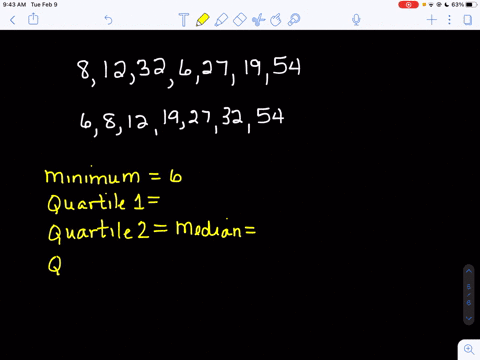 9:43 AM Tue Feb 9
63%
8, 12, 32, 6, 27, 19, 54
6, 8, 12, 19, 27, 32, 54
minimum = 6
Quartile 1 =
Quartile 2 = median =
Q
5
6